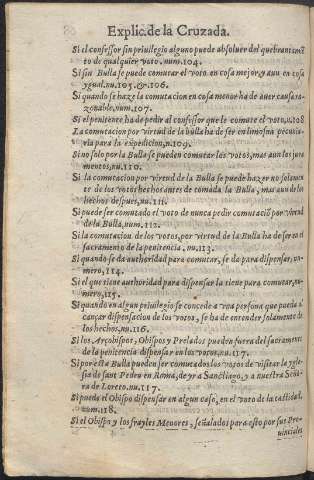 Explic. de la Cruzada.
Si el confessor sin priuilegio alguno puede absoluer del quebrantamiẽ
to de qualquier voto. num. 104.
Si sin Bulla se puede comutar el voto en cosa mejor, y aun en cosa
ygual. nu. 105. & 106.
Si quando se haze la comutacion en cosa menor ha de auer causa ra-
zonable, num. 107.
Si el penitente ha de pedir al confessor que le comute el voto, n. 108
La comutacion por virtud de la bulla ha de ser en limosna pecunia-
ria para la expedicion, n. 109.
Si no solo por la Bulla se pueden comutar los votos, mas aun los jura
mentos, nu. 110.
Si la comutacion por virtud de la Bulla se puede hazer no solamen
te de los votos hechos antes de tomada la Bulla, mas aun de los
hechos despues, nu. 111.
Si puede ser comutado el voto de nunca pedir comutaciõ por virtud
de la Bulla, num. 112.
Si la comutacion de los votos, por virtud de la Bulla ha de ser en el
sacramento de la penitencia, nu. 113.
Si quando se da authoridad para comutar, se da para dispensar, nu-
mero, 114.
Si el que tiene authoridad para dispensar la tiene para comutar, nu-
mero, 115.
Si quando en algun priuilegio se concede a vna persona que pueda al
cançar dispensacion de los votos, se ha de entender solamente de
los hechos, nu. 116.
Si los Arçobispos, Obispos y Prelados pueden fuera del sacramento
de la penitencia dispensar en los votos, nu. 117.
Si por esta Bulla pueden ser comutados los votos de visitar la ygle-
sia de sant Pedro en Roma, de yr a Sanctiago, y a nuestra Seño-
ra de Loreto, nu. 117.
Si puede el Obispo dispensar en algun caso, en el voto de la castidad,
num. 118.
Si el Obispo y los frayles Menores, señalados para esto por sus Pro-
uinciales